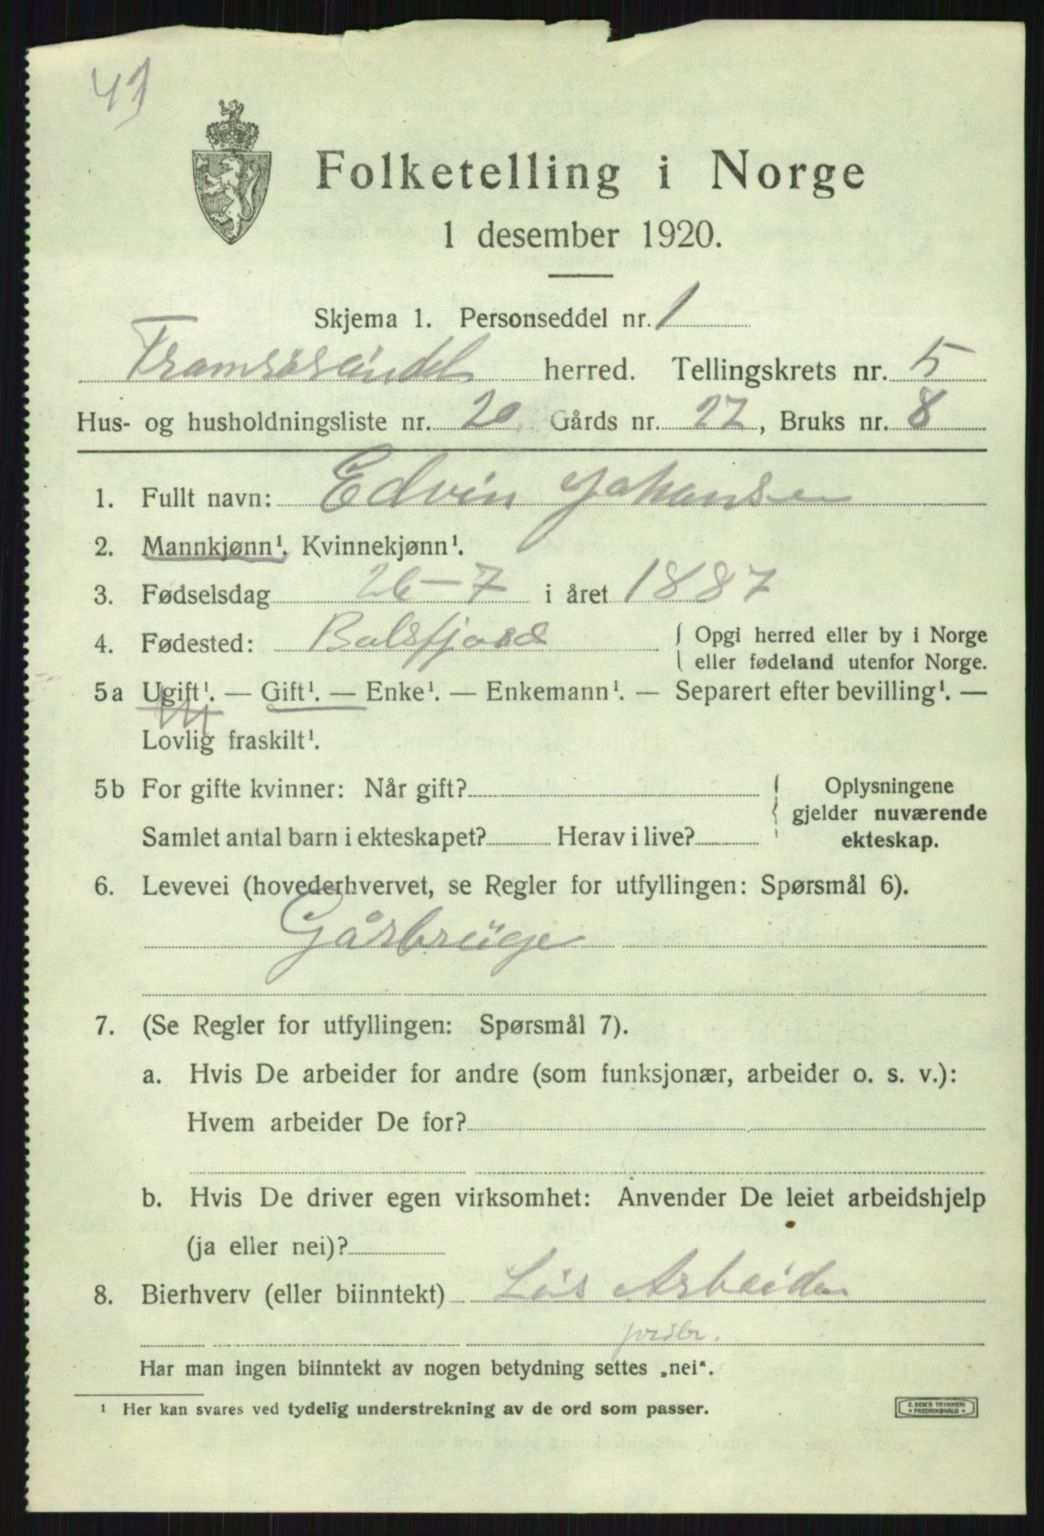 41
Folketelling i Norge
1 desember 1920.
Skjema 1. Personseddel nr. 1
Tromsøsundet herred. Tellingskrets nr. 5
Hus- og husholdningsliste nr. 20 Gårds nr. 22, Bruks nr. 8
1. Fullt navn: Edvin Johansen
2. Mannkjønn¹. Kvinnekjønn¹.
3. Fødselsdag 26-7 i året 1887
4. Fødested: Balsfjord { Opgi herred eller by i Norge
eller fødeland utenfor Norge.
5a Ugift¹. — Gift¹. — Enke¹. — Enkemann¹. — Separert efter bevilling¹. —
Lovlig fraskilt¹.
5b For gifte kvinner: Når gift? { Oplysningene
gjelder nuværende
Samlet antal barn i ekteskapet? Herav i live? ekteskap.
6. Levevei (hovederhvervet, se Regler for utfyllingen: Spørsmål 6).
Gårbruge
7. (Se Regler for utfyllingen: Spørsmål 7).
a. Hvis De arbeider for andre (som funksjonær, arbeider o. s. v.):
Hvem arbeider De for?
b. Hvis De driver egen virksomhet: Anvender De leiet arbeidshjelp
(ja eller nei)?
8. Bierhverv (eller biinntekt) Løis Arbeider
jordbr.
Har man ingen biinntekt av nogen betydning settes „nei".
¹ Her kan svares ved tydelig understrekning av de ord som passer.
E. SEM'S TRYKKERI
FREDRIKSHALD